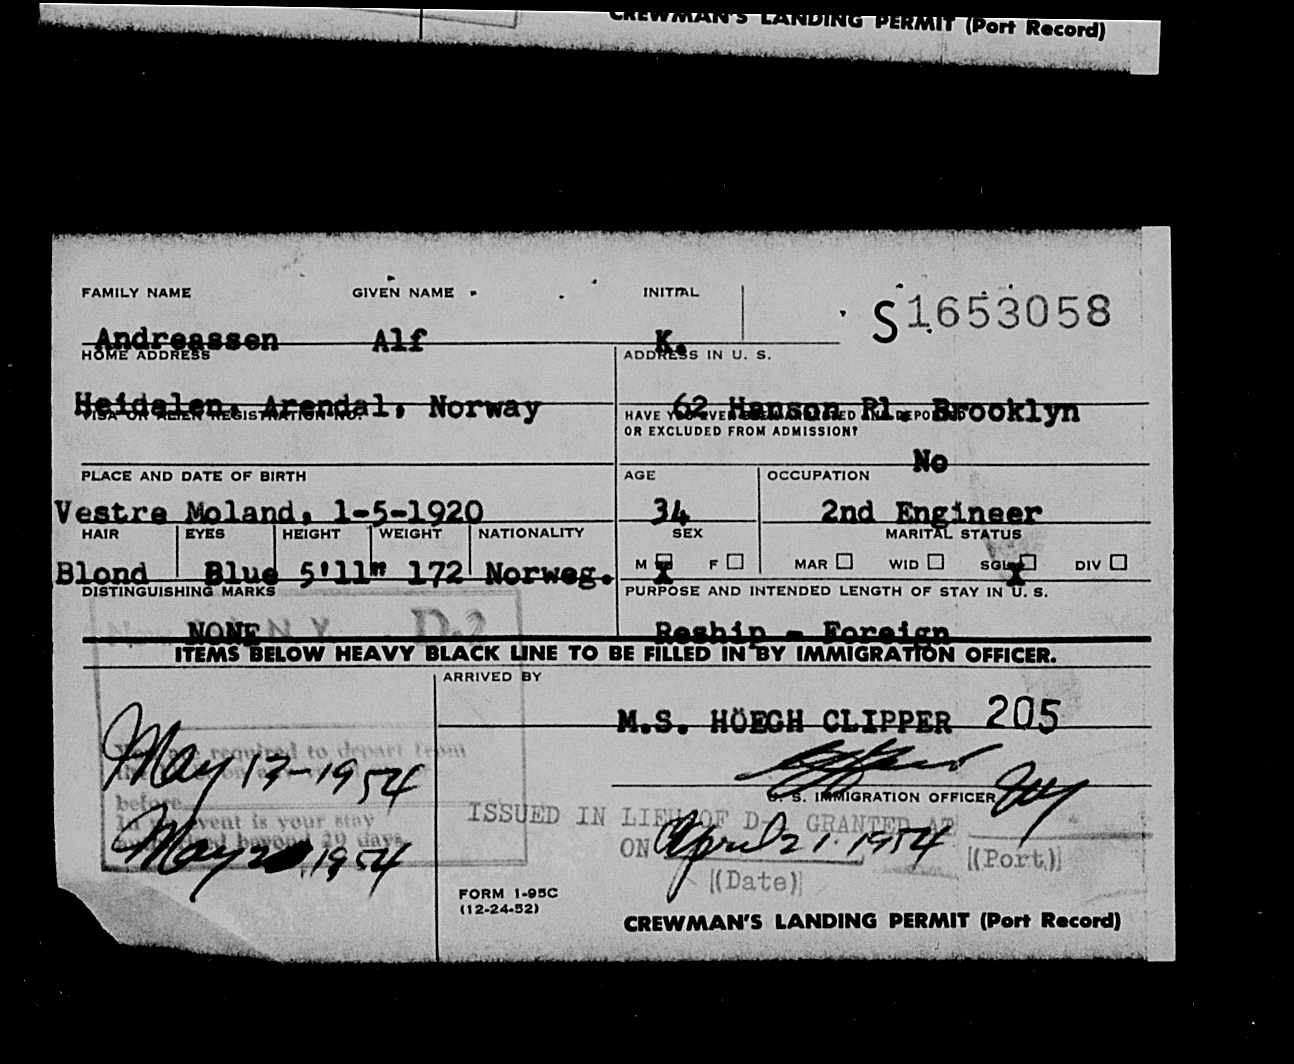 CREWMAN'S LANDING PERMIT (Port Record)
FAMILY NAME GIVEN NAME INITIAL
S1653058
Andreassen Alf K.
HOME ADDRESS ADDRESS IN U. S.
Heidalen, Arendal, Norway 62 Hanson Pl. Brooklyn
VISA OR ALIEN REGISTRATION NO. HAVE YOU EVER BEEN ARRESTED AND DEPORTED
OR EXCLUDED FROM ADMISSION?
No
PLACE AND DATE OF BIRTH AGE OCCUPATION
Vestre Moland, 1-5-1920 34 2nd Engineer
HAIR EYES HEIGHT WEIGHT NATIONALITY SEX MARITAL STATUS
M X F MAR WID SGL X DIV
Blond Blue 5'11" 172 Norweg.
DISTINGUISHING MARKS PURPOSE AND INTENDED LENGTH OF STAY IN U. S.
NONE N.Y. D-2 Reship - Foreign
ITEMS BELOW HEAVY BLACK LINE TO BE FILLED IN BY IMMIGRATION OFFICER.
ARRIVED BY
M.S. HÖEGH CLIPPER 205
You are required to depart from
May 17-1954
before
U. S. IMMIGRATION OFFICER NY
ISSUED IN LIEU OF D- GRANTED AT
event is your stay
beyond 29 days
May 20, 1954
ON April 21. 1954 (Port)
(Date)
FORM I-95C
(12-24-52)
CREWMAN'S LANDING PERMIT (Port Record)